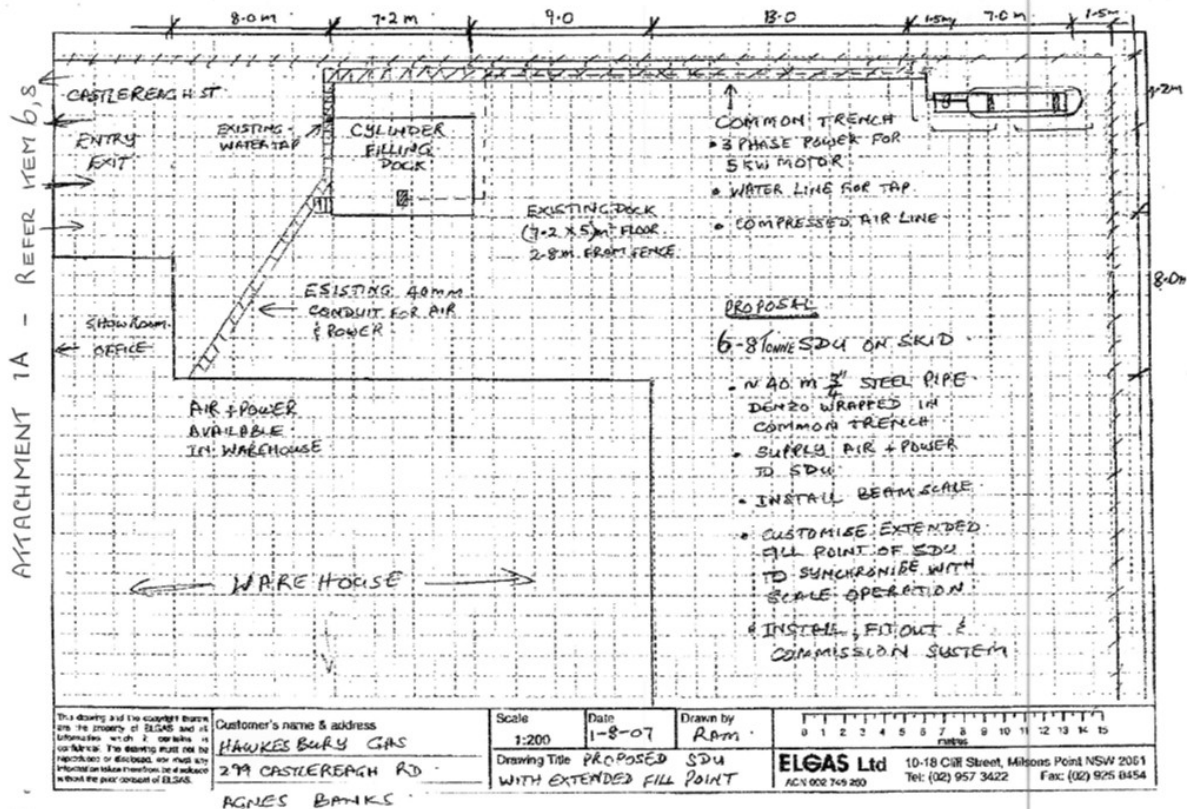 8.0m 7.2m 9.0 13.0 1.5m 7.0m 1.5m
ATTACHMENT 1A - REFER ITEM 6,8
CASTLEREAGH ST
ENTRY
EXIT
EXISTING
WATER TAP
CYLINDER
FILLING
DOCK
COMMON TRENCH
• 3 PHASE POWER FOR
5 KW MOTOR
• WATER LINE FOR TAP
• COMPRESSED AIR LINE
1.2m
8.0m
EXISTING DOCK
(7.2 x 5)m² FLOOR
2.8m FROM FENCE
ESISTING 40mm
CONDUIT FOR AIR
& POWER
SHOWROOM
OFFICE
AIR + POWER
AVAILABLE
IN WAREHOUSE
WAREHOUSE
PROPOSAL
6-8 TONNE SDU ON SKID
• N 40 m 3/4" STEEL PIPE
DENZO WRAPPED IN
COMMON TRENCH
• SUPPLY AIR + POWER
TO SDU
• INSTALL BEAM SCALE
• CUSTOMISE EXTENDED
FILL POINT OF SDU
TO SYNCHRONISE WITH
SCALE OPERATION
• INSTALL, FIT OUT &
COMMISSION SYSTEM
This drawing and the copyright therein
are the property of ELGAS and all
information which it contains is
confidential. The drawing must not be
reproduced or disclosed, nor must any
information taken therefrom be disclosed
without the prior consent of ELGAS.
Customer's name & address
HAWKESBURY GAS
299 CASTLEREAGH RD
AGNES BANKS
Scale
1:200
Date
1-8-07
Drawn by
RAM
Drawing Title PROPOSED SDU
WITH EXTENDED FILL POINT
0 1 2 3 4 5 6 7 8 9 10 11 12 13 14 15
metres
ELGAS Ltd
ACN 002 749 260
10-18 Cliff Street, Milsons Point NSW 2061
Tel: (02) 957 3422 Fax: (02) 925 0454